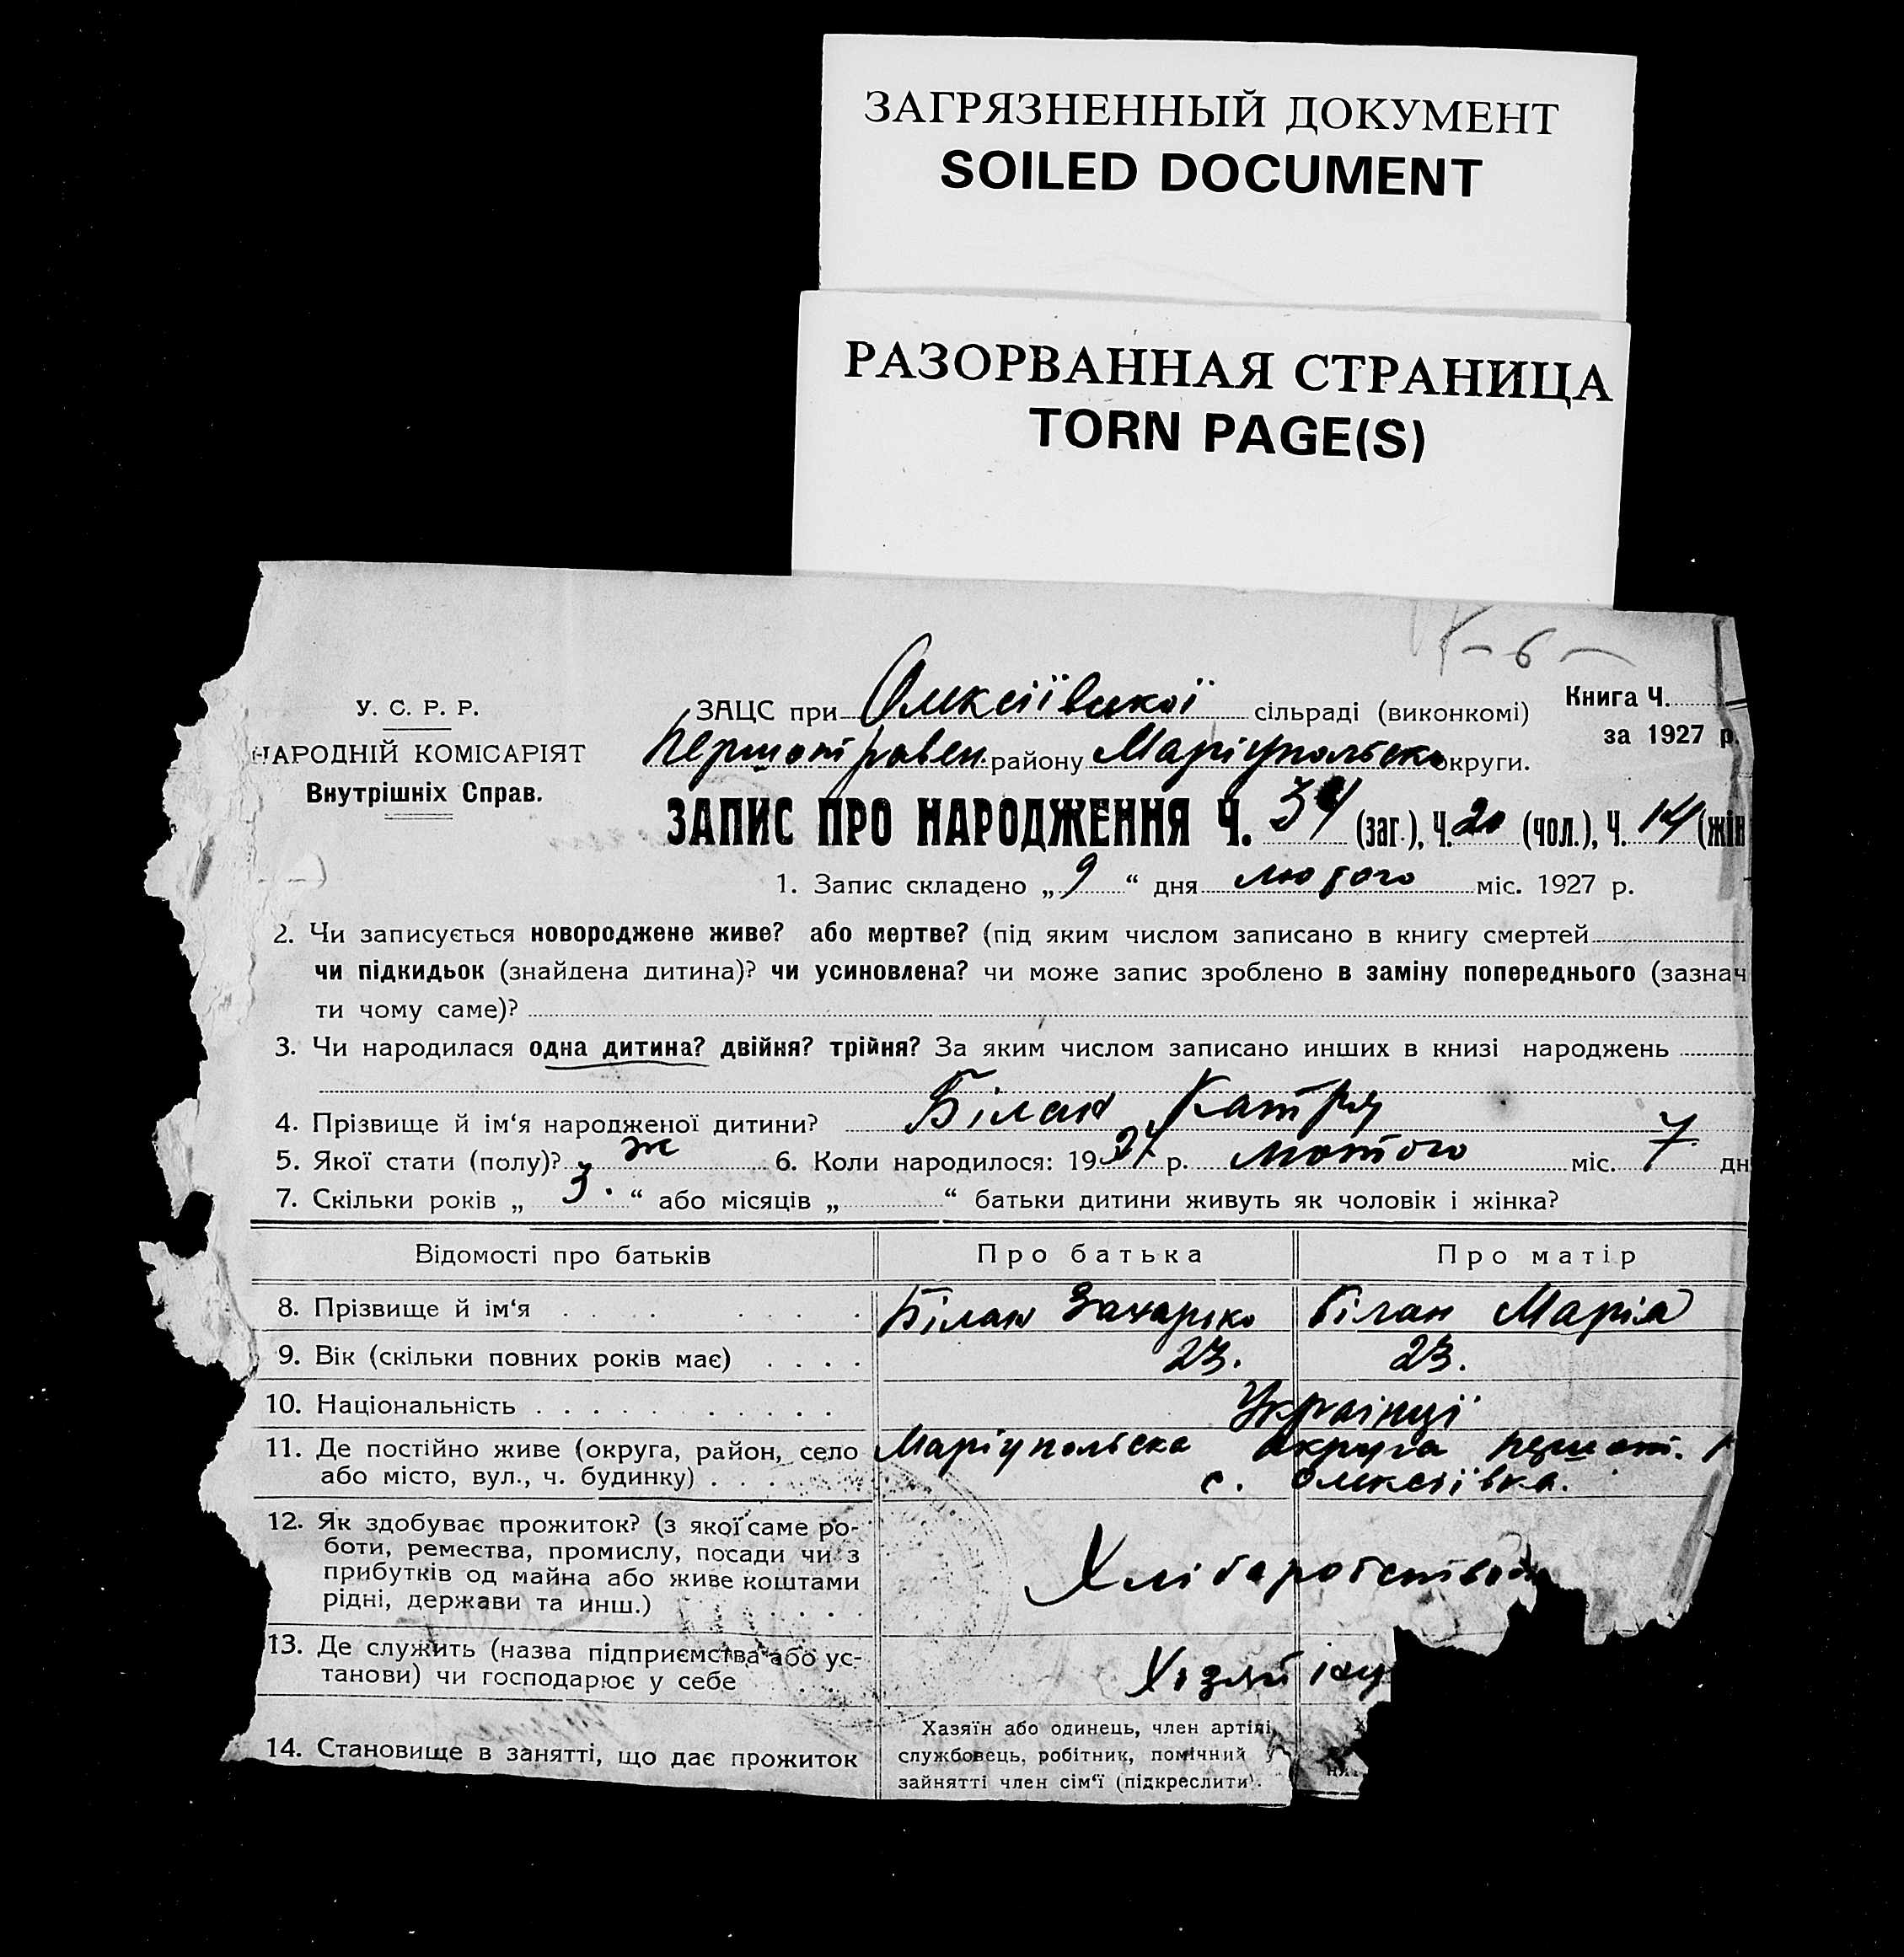 ЗАГРЯЗНЕННЫЙ ДОКУМЕНТ
SOILED DOCUMENT
РАЗОРВАННАЯ СТРАНИЦА
TORN PAGE(S)
- 6 -
У. С. Р. Р.
НАРОДНІЙ КОМІСАРІЯТ
Внутрішніх Справ.
ЗАЦС при Олексіївської сільраді (виконкомі)
Першотравен. району Маріупольсько округи.
Книга Ч.
за 1927 р.
ЗАПИС ПРО НАРОДЖЕННЯ Ч. 34 (заг.), Ч. 20 (чол.), Ч. 14 (жін
1. Запис складено „ 9 “ дня лютого міс. 1927 р.
2. Чи записується новороджене живе? або мертве? (під яким числом записано в книгу смертей
чи підкидьок (знайдена дитина)? чи усиновлена? чи може запис зроблено в заміну попереднього (зазнач
ти чому саме)?
3. Чи народилася одна дитина? двійня? трійня? За яким числом записано инших в книзі народжень
4. Прізвище й ім‘я народженої дитини? Білан Катря
5. Якої стати (полу)? ж 6. Коли народилося: 1927 р. лютого міс. 7 дн
7. Скільки років „ 3. “ або місяців „ “ батьки дитини живуть як чоловік і жінка?
Відомості про батьків Про батька Про матір
8. Прізвище й ім‘я Білан Захарько Білан Марія
9. Вік (скільки повних років має) 23. 23.
10. Національність Українці
11. Де постійно живе (округа, район, село Маріупольска округа першот.
або місто, вул., ч. будинку) с. Олексіївка.
12. Як здобуває прожиток? (з якої саме ро-
боти, ремества, промислу, посади чи з
прибутків од майна або живе коштами
рідні, держави та инш.) Хлібаробством
13. Де служить (назва підприємства або ус-
танови) чи господарює у себе
14. Становище в занятті, що дає прожиток
Хазяїн або одинець, член артілі,
службовець, робітник, помічний у
зайнятті член сім‘ї (підкреслити).